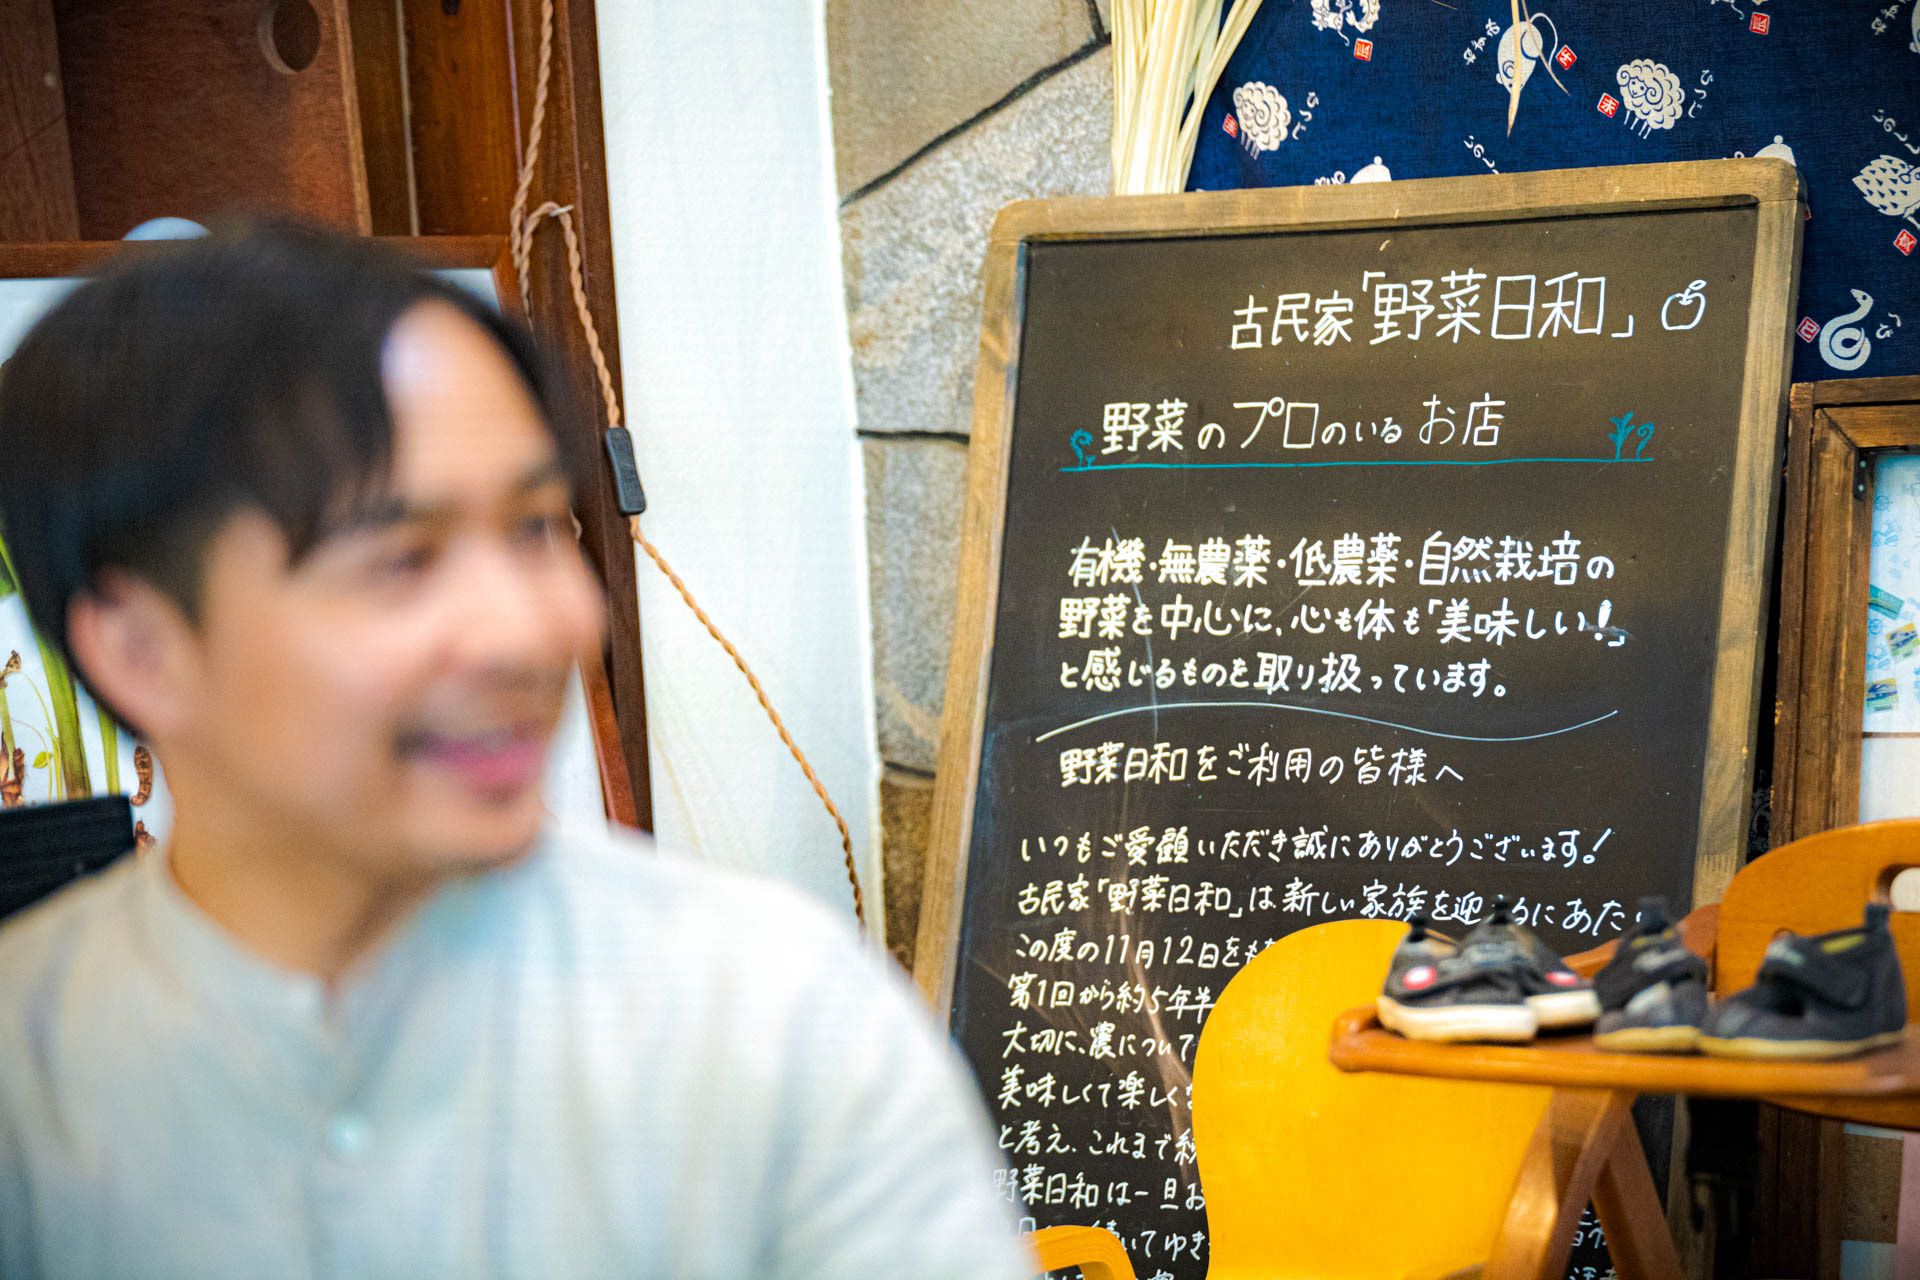 古民家「野菜日和」
野菜のプロのいるお店
有機・無農薬・低農薬・自然栽培の
野菜を中心に、心も体も「美味しい!」
と感じるものを取り扱っています。
野菜日和をご利用の皆様へ
いつもご愛顧いただき誠にありがとうございます!
古民家「野菜日和」は新しい家族を迎えるにあた
この度の11月12日をも
第1回から約5年半
大切に、農について
美味しくて楽しく
と考え、これまで
野菜日和は一旦お
いてゆき
ひつじ
ひつじ
へび
未
巳